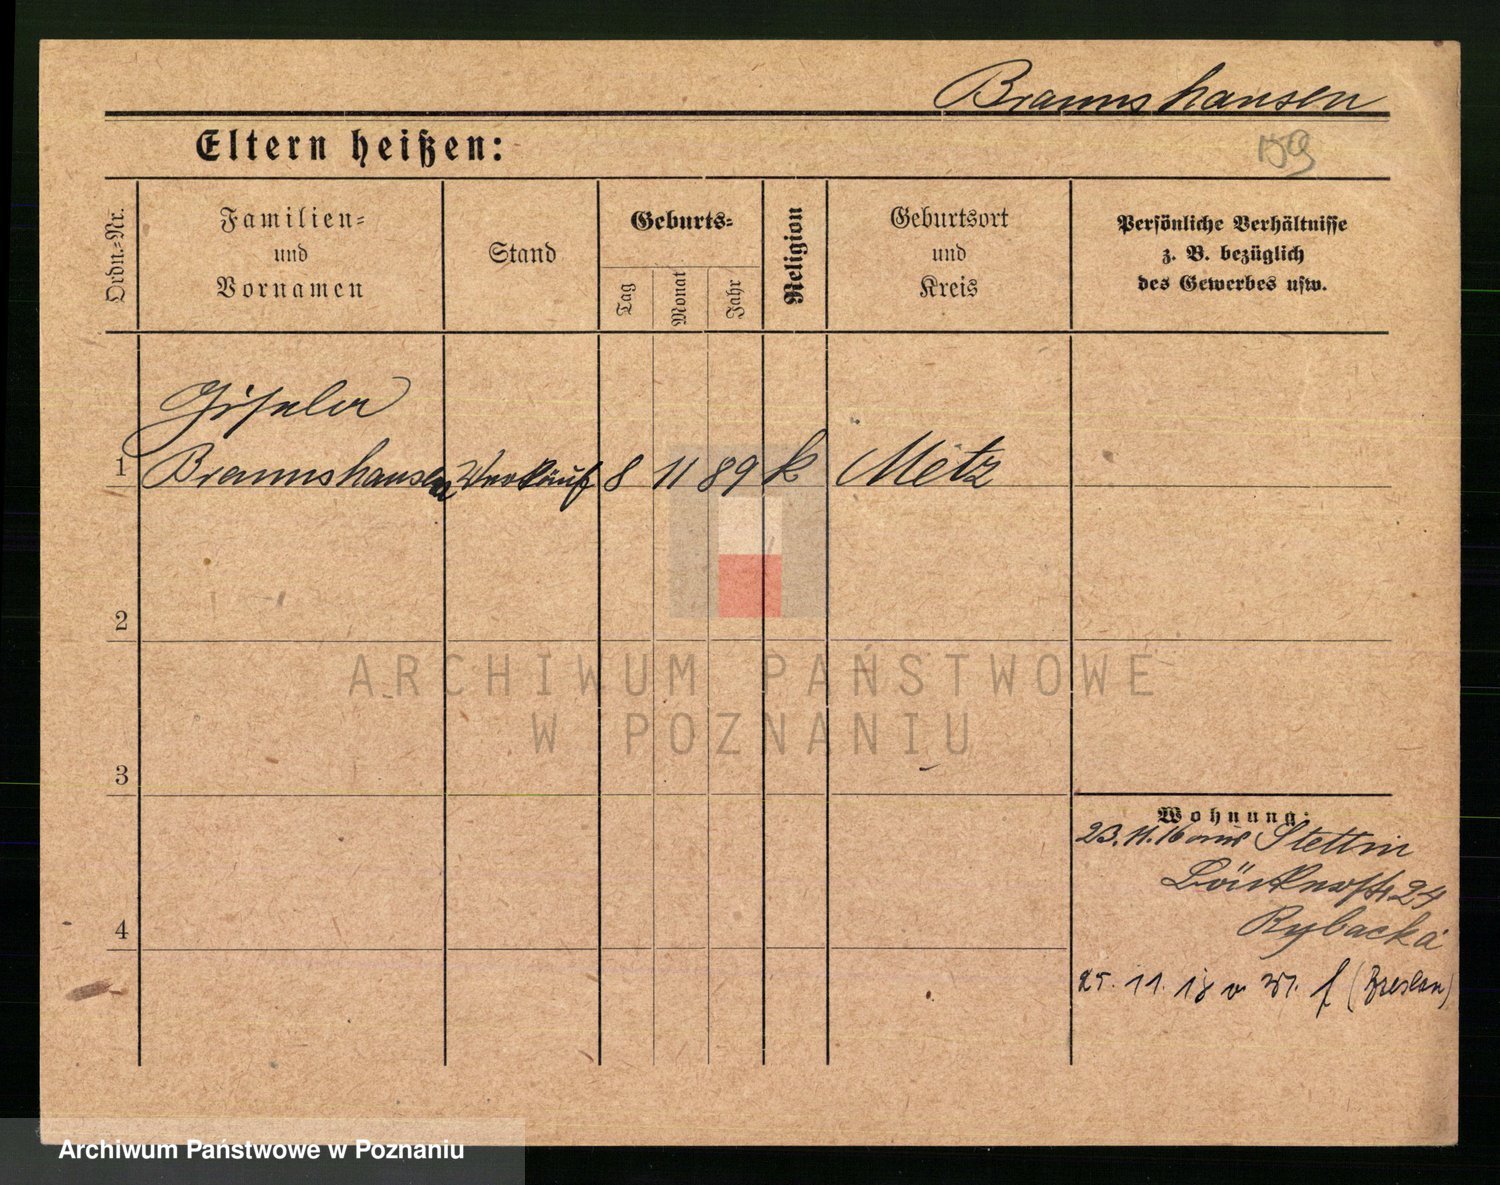 Braunshausen
Eltern heißen:
159
Ordn.=Nr.
Familien=
und
Vornamen
Stand
Geburts=
Tag
Monat
Jahr
Religion
Geburtsort
und
Kreis
Persönliche Verhältnisse
z. B. bezüglich
des Gewerbes usw.
Gisela
1 Braunshausen Verkäuf 8 11 89 k Metz
2
ARCHIWUM PAŃSTWOWE
W POZNANIU
3
Wohnung:
23.11.16 aus Stettin
24
Rybacka
4
25. 11. 18 v (Breslau)
Archiwum Państwowe w Poznaniu